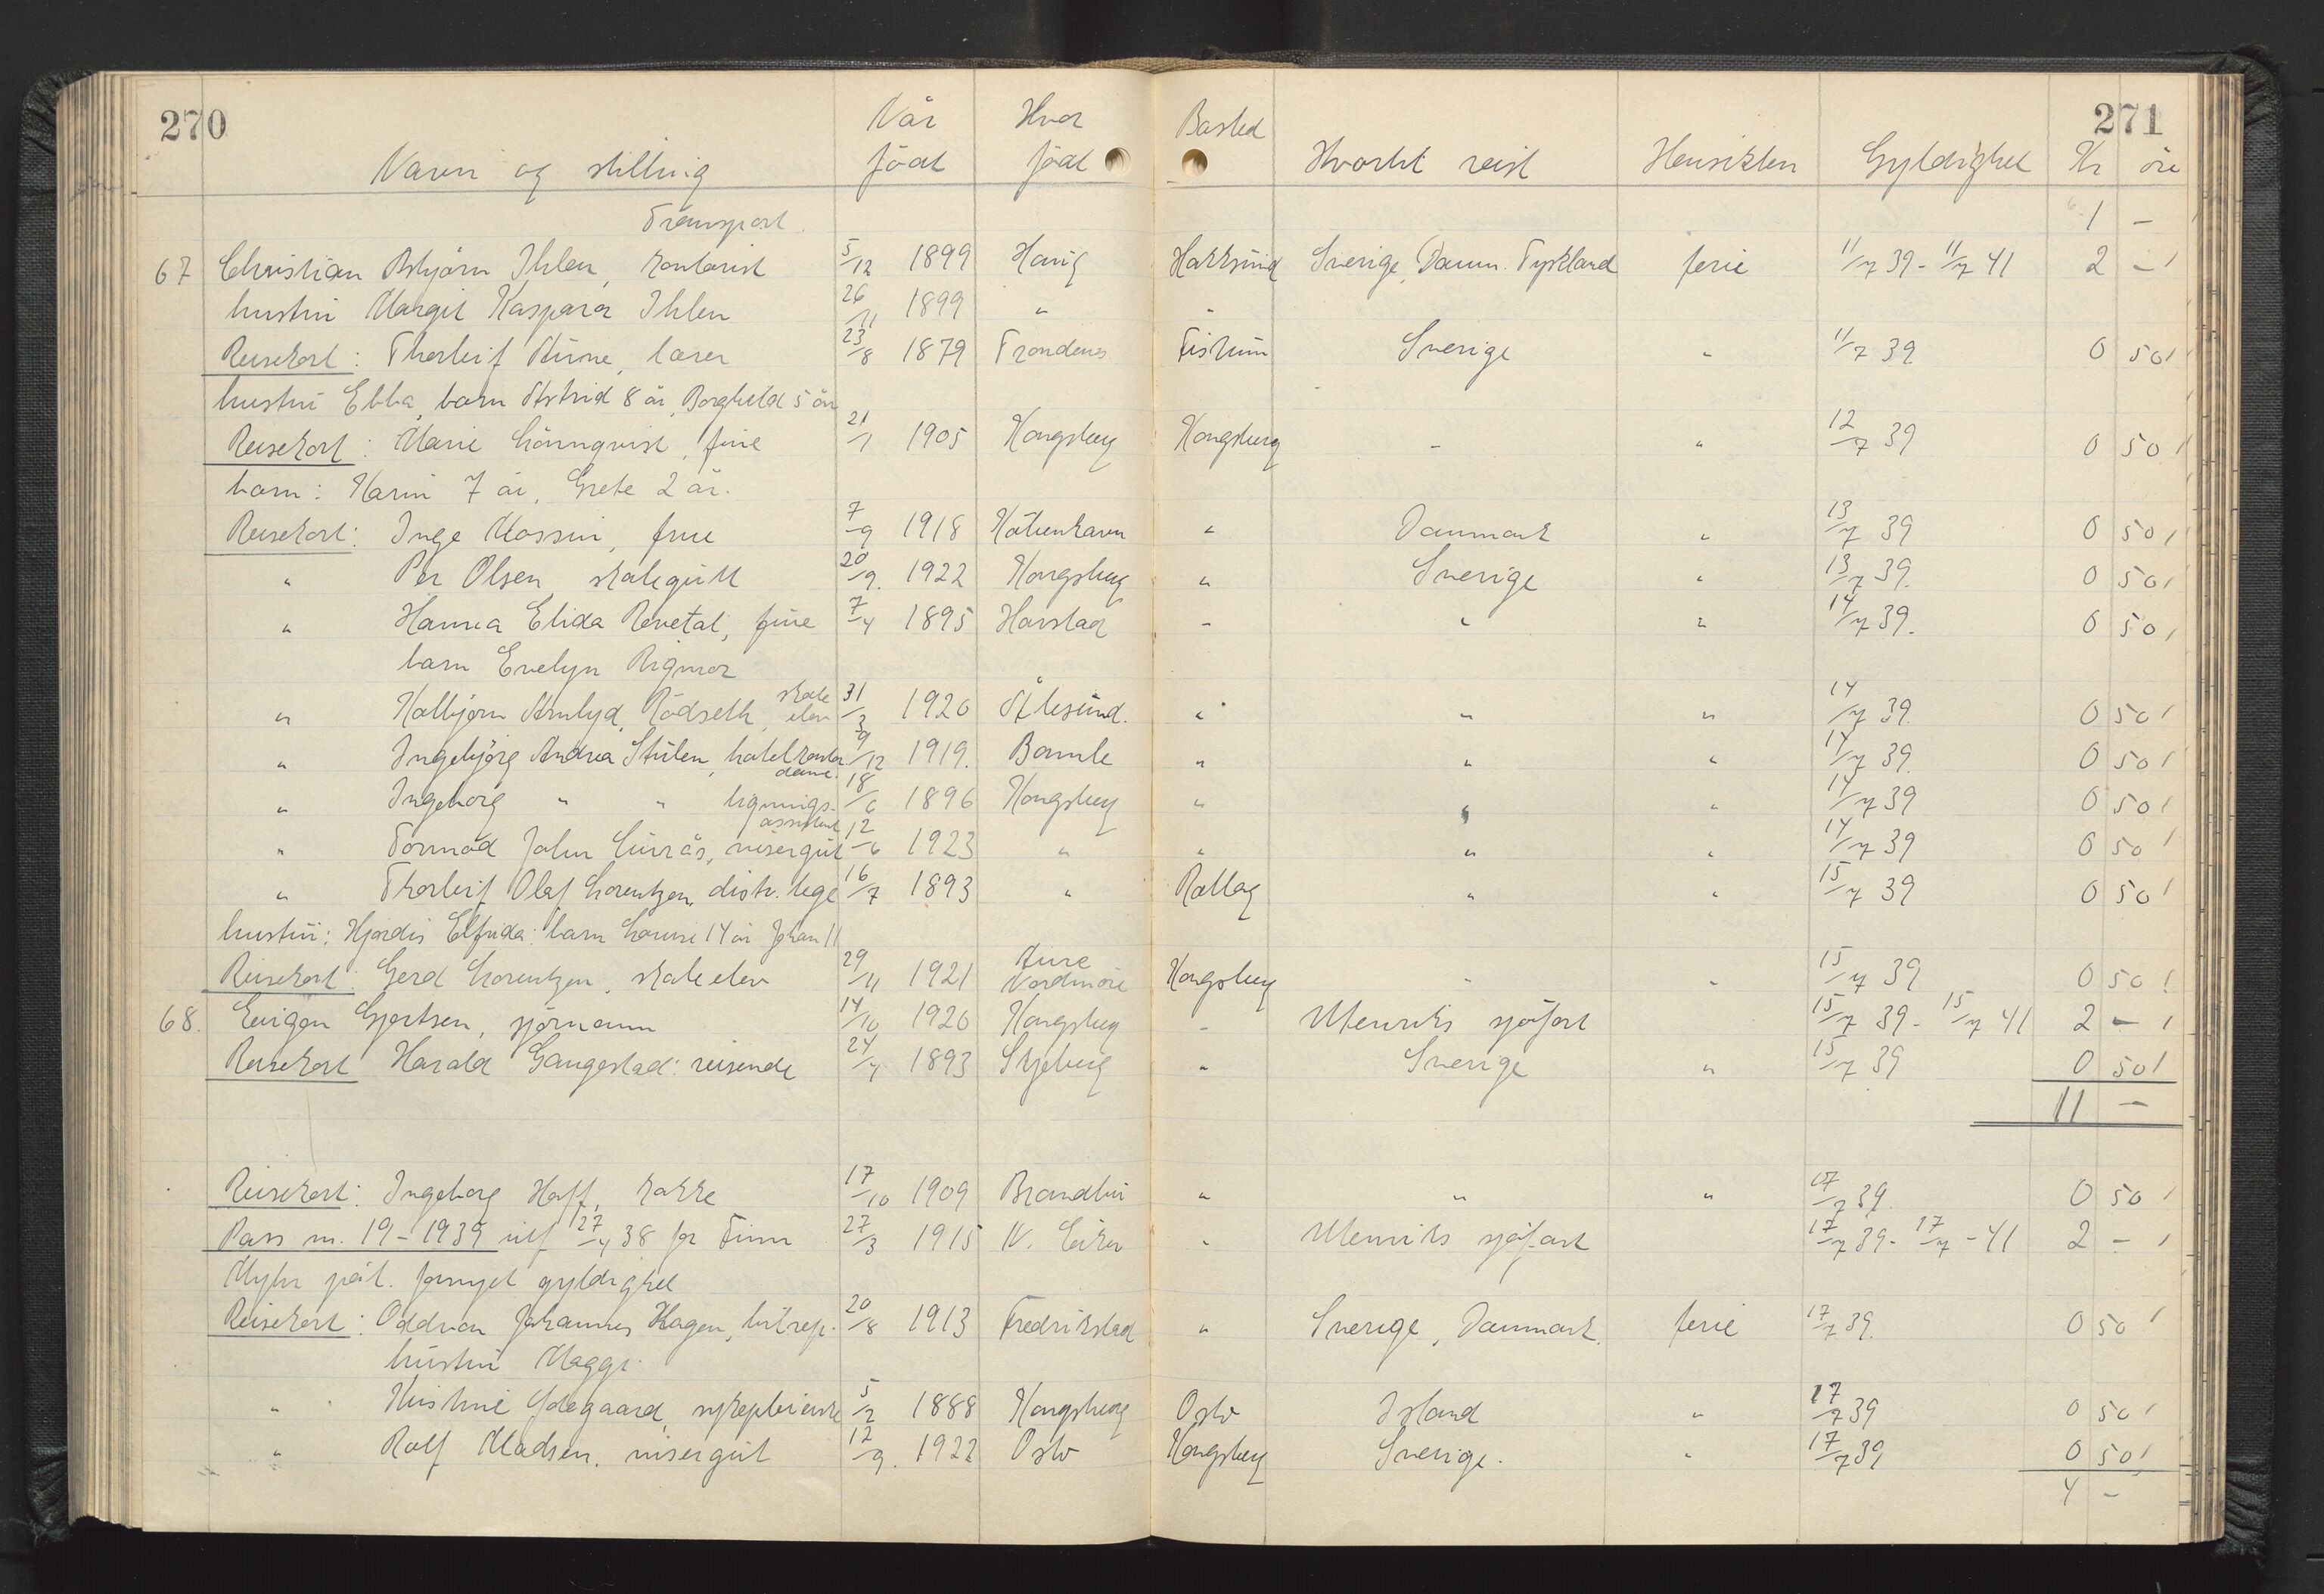 270 271
Når Hvor Bosted
Navn og stilling født født Hvorhen reist Hensikten Gyldighet Kr øre
Transport 1 -
67 Christian Asbjørn Ihlen, kontorist 5/12 1899 Hokksund Sverige, Danm. Tyskland ferie 11/7 39 - 11/7 41 2 -
hustru Margit Kaspara Ihlen 26/11 1899 "
Reisekort: Thorleif Aune, lærer 23/8 1879 Trondenes Fiskum Sverige " 11/7 39 0 50
hustru Ebba, barn Astrid 8 år, Borghild 5 år
Reisekort: Marie Lönnqvist, frue 21/1 1905 Kongsberg Kongsberg - " 12/7 39 0 50
barn: Karin 7 år, Grete 2 år.
Reisekort: Inge Mossin, frue 7/9 1918 København " Danmark " 13/7 39 0 50
" Per Olsen skolegutt 20/9. 1922 Kongsberg " Sverige " 13/7 39. 0 50
" Hanna Elida Revetal, frue 7/4 1895 Harstad - " " 14/7 39. 0 50
barn Evelyn Rigmor
" Kolbjørn Arnlyd Rødseth, skole elev 31/3 1920 Ålesund. " " " 14/7 39. 0 50
" Ingebjørg Andrea Stulen, hotelkontor dame. 9/12 1919. Bamle " " " 14/7 39. 0 50
" Ingeborg " " ligningsassistent 18/6 1896 Kongsberg " " " 14/7 39 0 50
" Tormod John Lurås, visergut 12/6 1923 " " " " 14/7 39 0 50
" Thorleif Olaf Lorentzen, distr. lege 16/7 1893 " Rollag " " 15/7 39 0 50
hustru: Hjørdis Elfrida: barn Lovise 14 år Johan 11
Reisekort: Gerd Lorentzen, skoleelev 29/11 1921 Aure Nordmøre Kongsberg - " 15/7 39 0 50
68. Eugen Gjertsen, sjømann 14/10 1920 Kongsberg - Utenriks sjøfart 15/7 39 - 15/7 41 2 -
Reisekort Harald Gaugestad: reisende 24/4 1893 Skjeberg " Sverige " 15/7 39 0 50
11 -
Reisekort: Ingeborg Hoff, kokke 17/10 1909 Brandbu " " " 17/7 39. 0 50
Pass nr. 19 - 1939 utf 27/4 38 for Finn 27/3 1915 N. Eiker " Utenriks sjøfart 17/7 39 - 17/7 - 41 2 -
Myhr påt. fornyet gyldighet
Reisekort: Oddvar Johannes Hagen, bilrep. 20/8 1913 Fredrikstad " Sverige, Danmark. ferie 17/7 39. 0 50
hustru Maggi.
" Kristine Ødegaard, sykepleierske 5/2 1888 Kongsberg Oslo Island " 17/7 39 0 50
" Rolf Madsen, visergut 12/9. 1922 Oslo Kongsberg Sverige. " 17/7 39 0 50
4 -